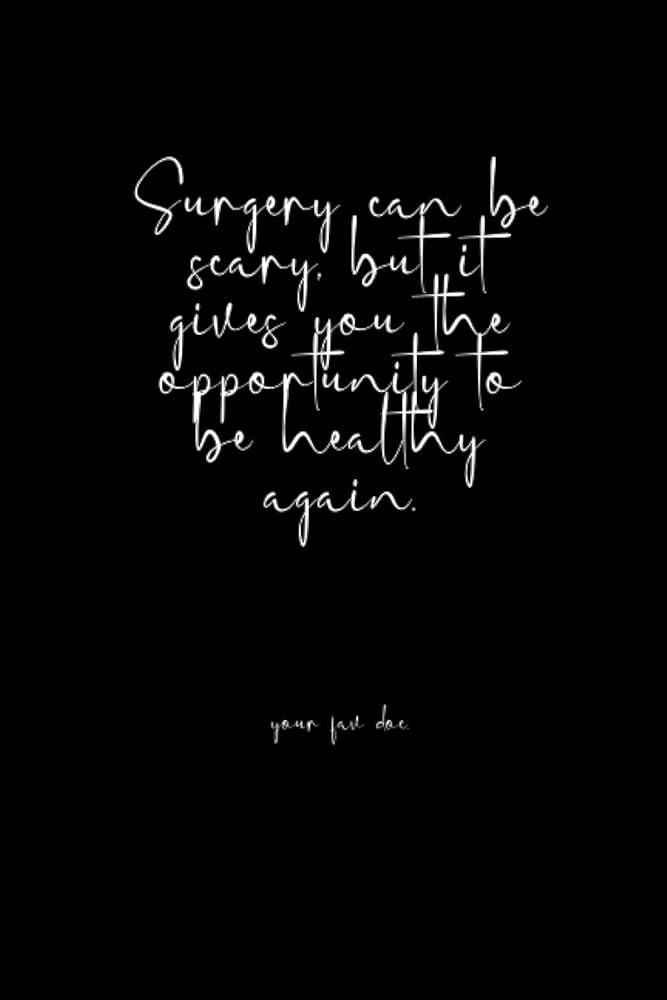 Surgery can be
scary, but it
gives you the
opportunity to
be healthy
again.
your fav doc.